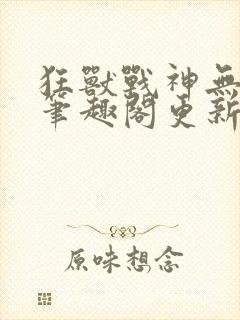 狂獸戰神無
筆趣閣更新
原味想念